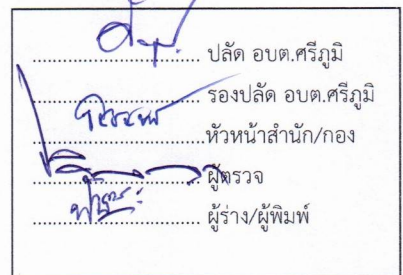 ........................ ปลัด อบต.ศรีภูมิ
........................ รองปลัด อบต.ศรีภูมิ
........................หัวหน้าสำนัก/กอง
........................ ผู้ตรวจ
........................ ผู้ร่าง/ผู้พิมพ์